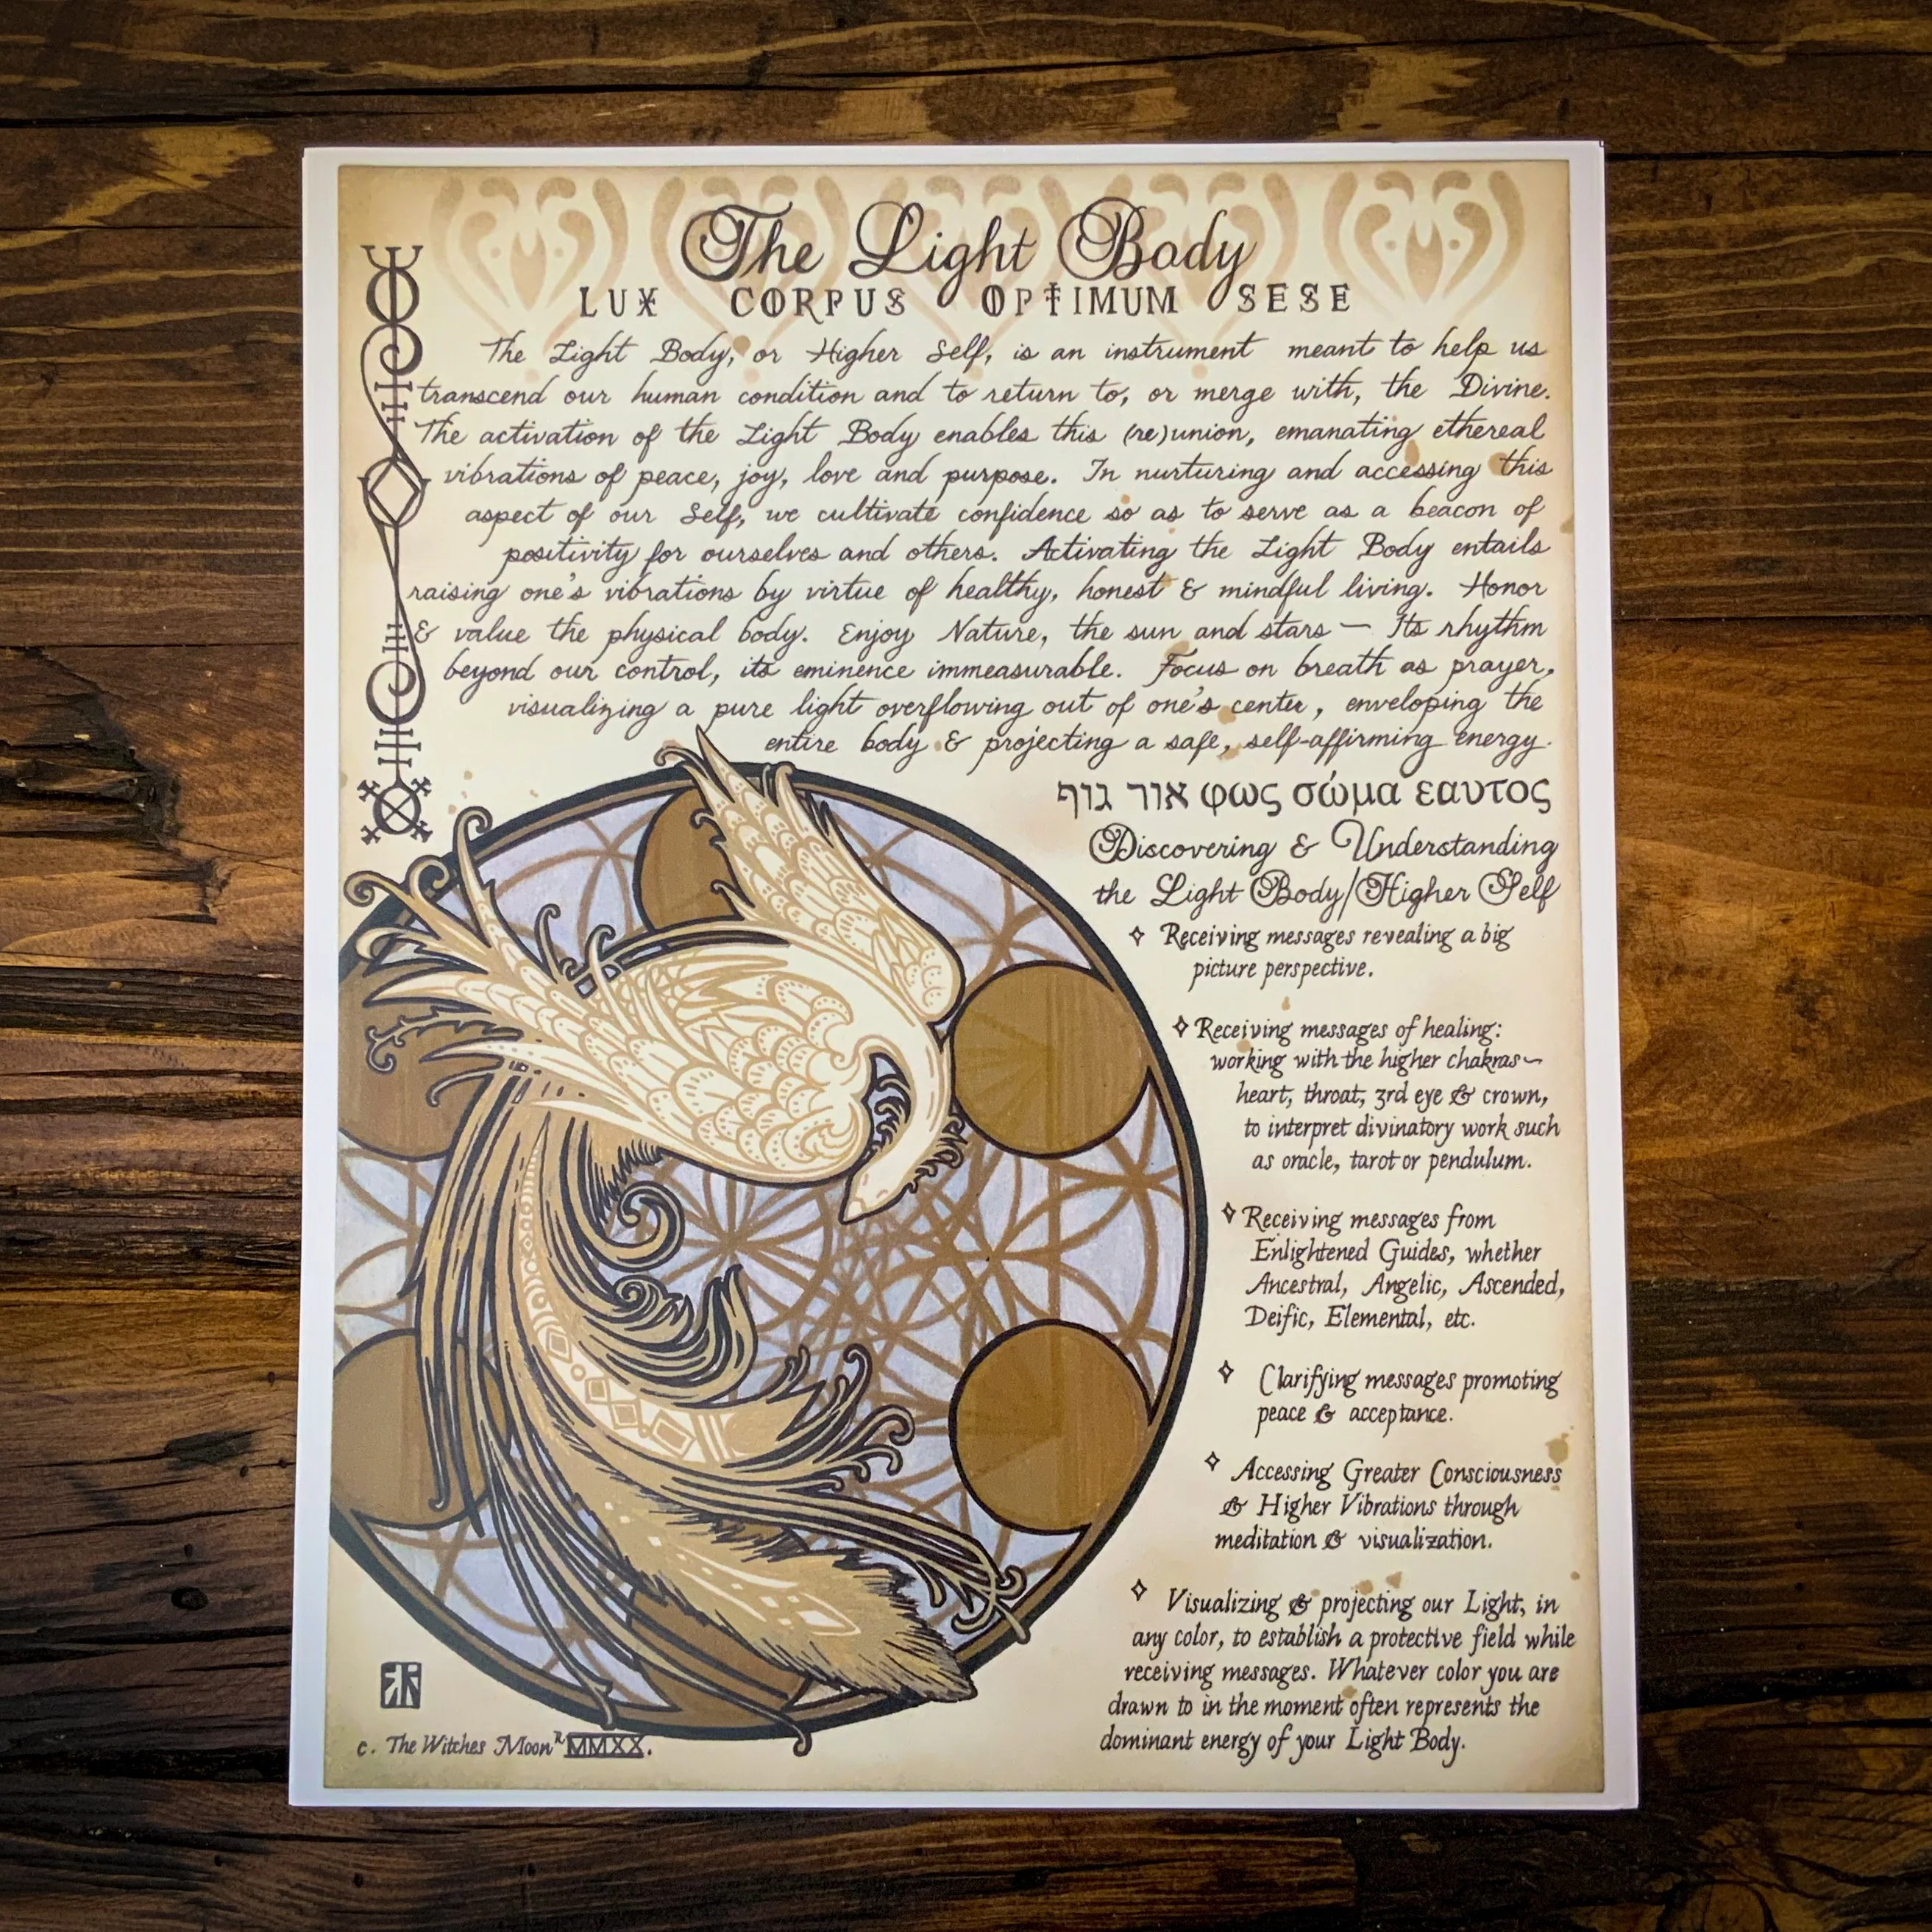 The Light Body
LUX CORPUS OPTIMUM SESE
The Light Body, or Higher Self, is an instrument meant to help us
transcend our human condition and to return to, or merge with, the Divine.
The activation of the Light Body enables this (re)union, emanating ethereal
vibrations of peace, joy, love and purpose. In nurturing and accessing this
aspect of our Self, we cultivate confidence so as to serve as a beacon of
positivity for ourselves and others. Activating the Light Body entails
raising one's vibrations by virtue of healthy, honest & mindful living. Honor
& value the physical body. Enjoy Nature, the sun and stars — Its rhythm
beyond our control, its eminence immeasurable. Focus on breath as prayer,
visualizing a pure light overflowing out of one's center, enveloping the
entire body & projecting a safe, self-affirming energy.
אור גוף φως σώμα εαυτος
Discovering & Understanding
the Light Body/Higher Self
✧ Receiving messages revealing a big
picture perspective.
✧ Receiving messages of healing:
working with the higher chakras~
heart, throat, 3rd eye & crown,
to interpret divinatory work such
as oracle, tarot or pendulum.
✧ Receiving messages from
Enlightened Guides, whether
Ancestral, Angelic, Ascended,
Deific, Elemental, etc.
✧ Clarifying messages promoting
peace & acceptance.
✧ Accessing Greater Consciousness
& Higher Vibrations through
meditation & visualization.
✧ Visualizing & projecting our Light, in
any color, to establish a protective field while
receiving messages. Whatever color you are
drawn to in the moment often represents the
dominant energy of your Light Body.
c. The Witches Moon MMXX.